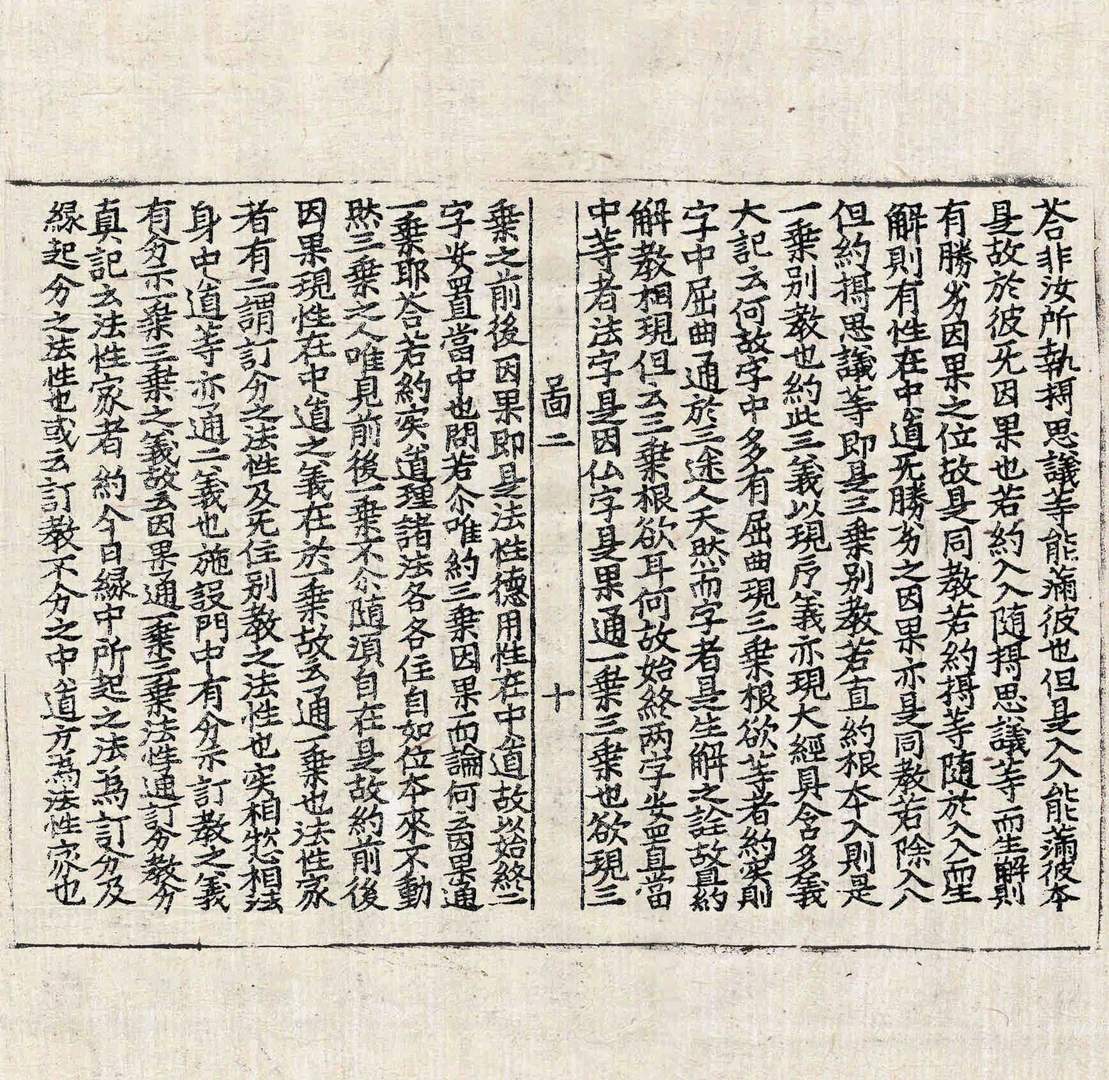 荅非汝所執思議等能滿彼也但是入入能滿彼本
是故於彼旡因果也若約入入随思議等而生解則
有勝劣因果之位故是同教若約等随於入入而生
解則有性在中道旡勝劣之因果亦是同教若除入入
但約思議等即是三乗別教若直約根本入則是
一乗別教也約此三義以現義亦現大經具含多義
大記云何故字中多有屈曲現三乗根欲等者約实則
字中屈曲通於三途人天然而字者是生解之詮故直約
解教相現但云三乗根欲耳何故始終两字安置當
中等者法字是因仏字是果通一乗三乗也欲現三
啚二 十
乗之前後因果即是法性德用性在中道故以始終二
字安置當中也問若尒唯約三乗因果而論何云因果通
一乗耶荅若約实道理諸法各各住自如位本來不動
然三乗之人唯見前後一乗不尒随湏自在是故約前後
因果現性在中道之義在於一乗故云通一乗也法性家
者有二謂訂分之法性及旡住別教之法性也实相惣相法
身中道等亦通二義也施設門中有分示訂教之義
有分示一乗三乗之義故云因果通一乗三乗法性通訂分教分
真記云法性家者約今日緣中所起之法為訂分及
緣起分之法性也或云訂教不分之中道方為法性家也